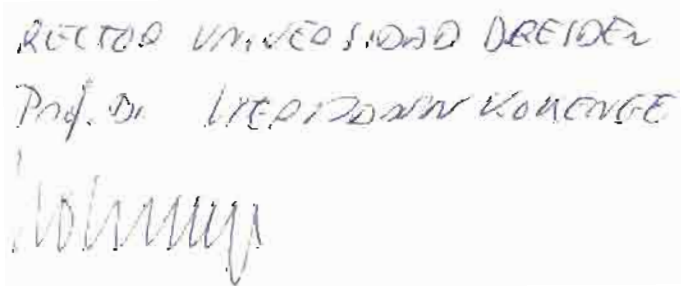 RECTOR UNIVERSIDAD DRESDEN
Prof. Dr. HERMANN KOKENGE